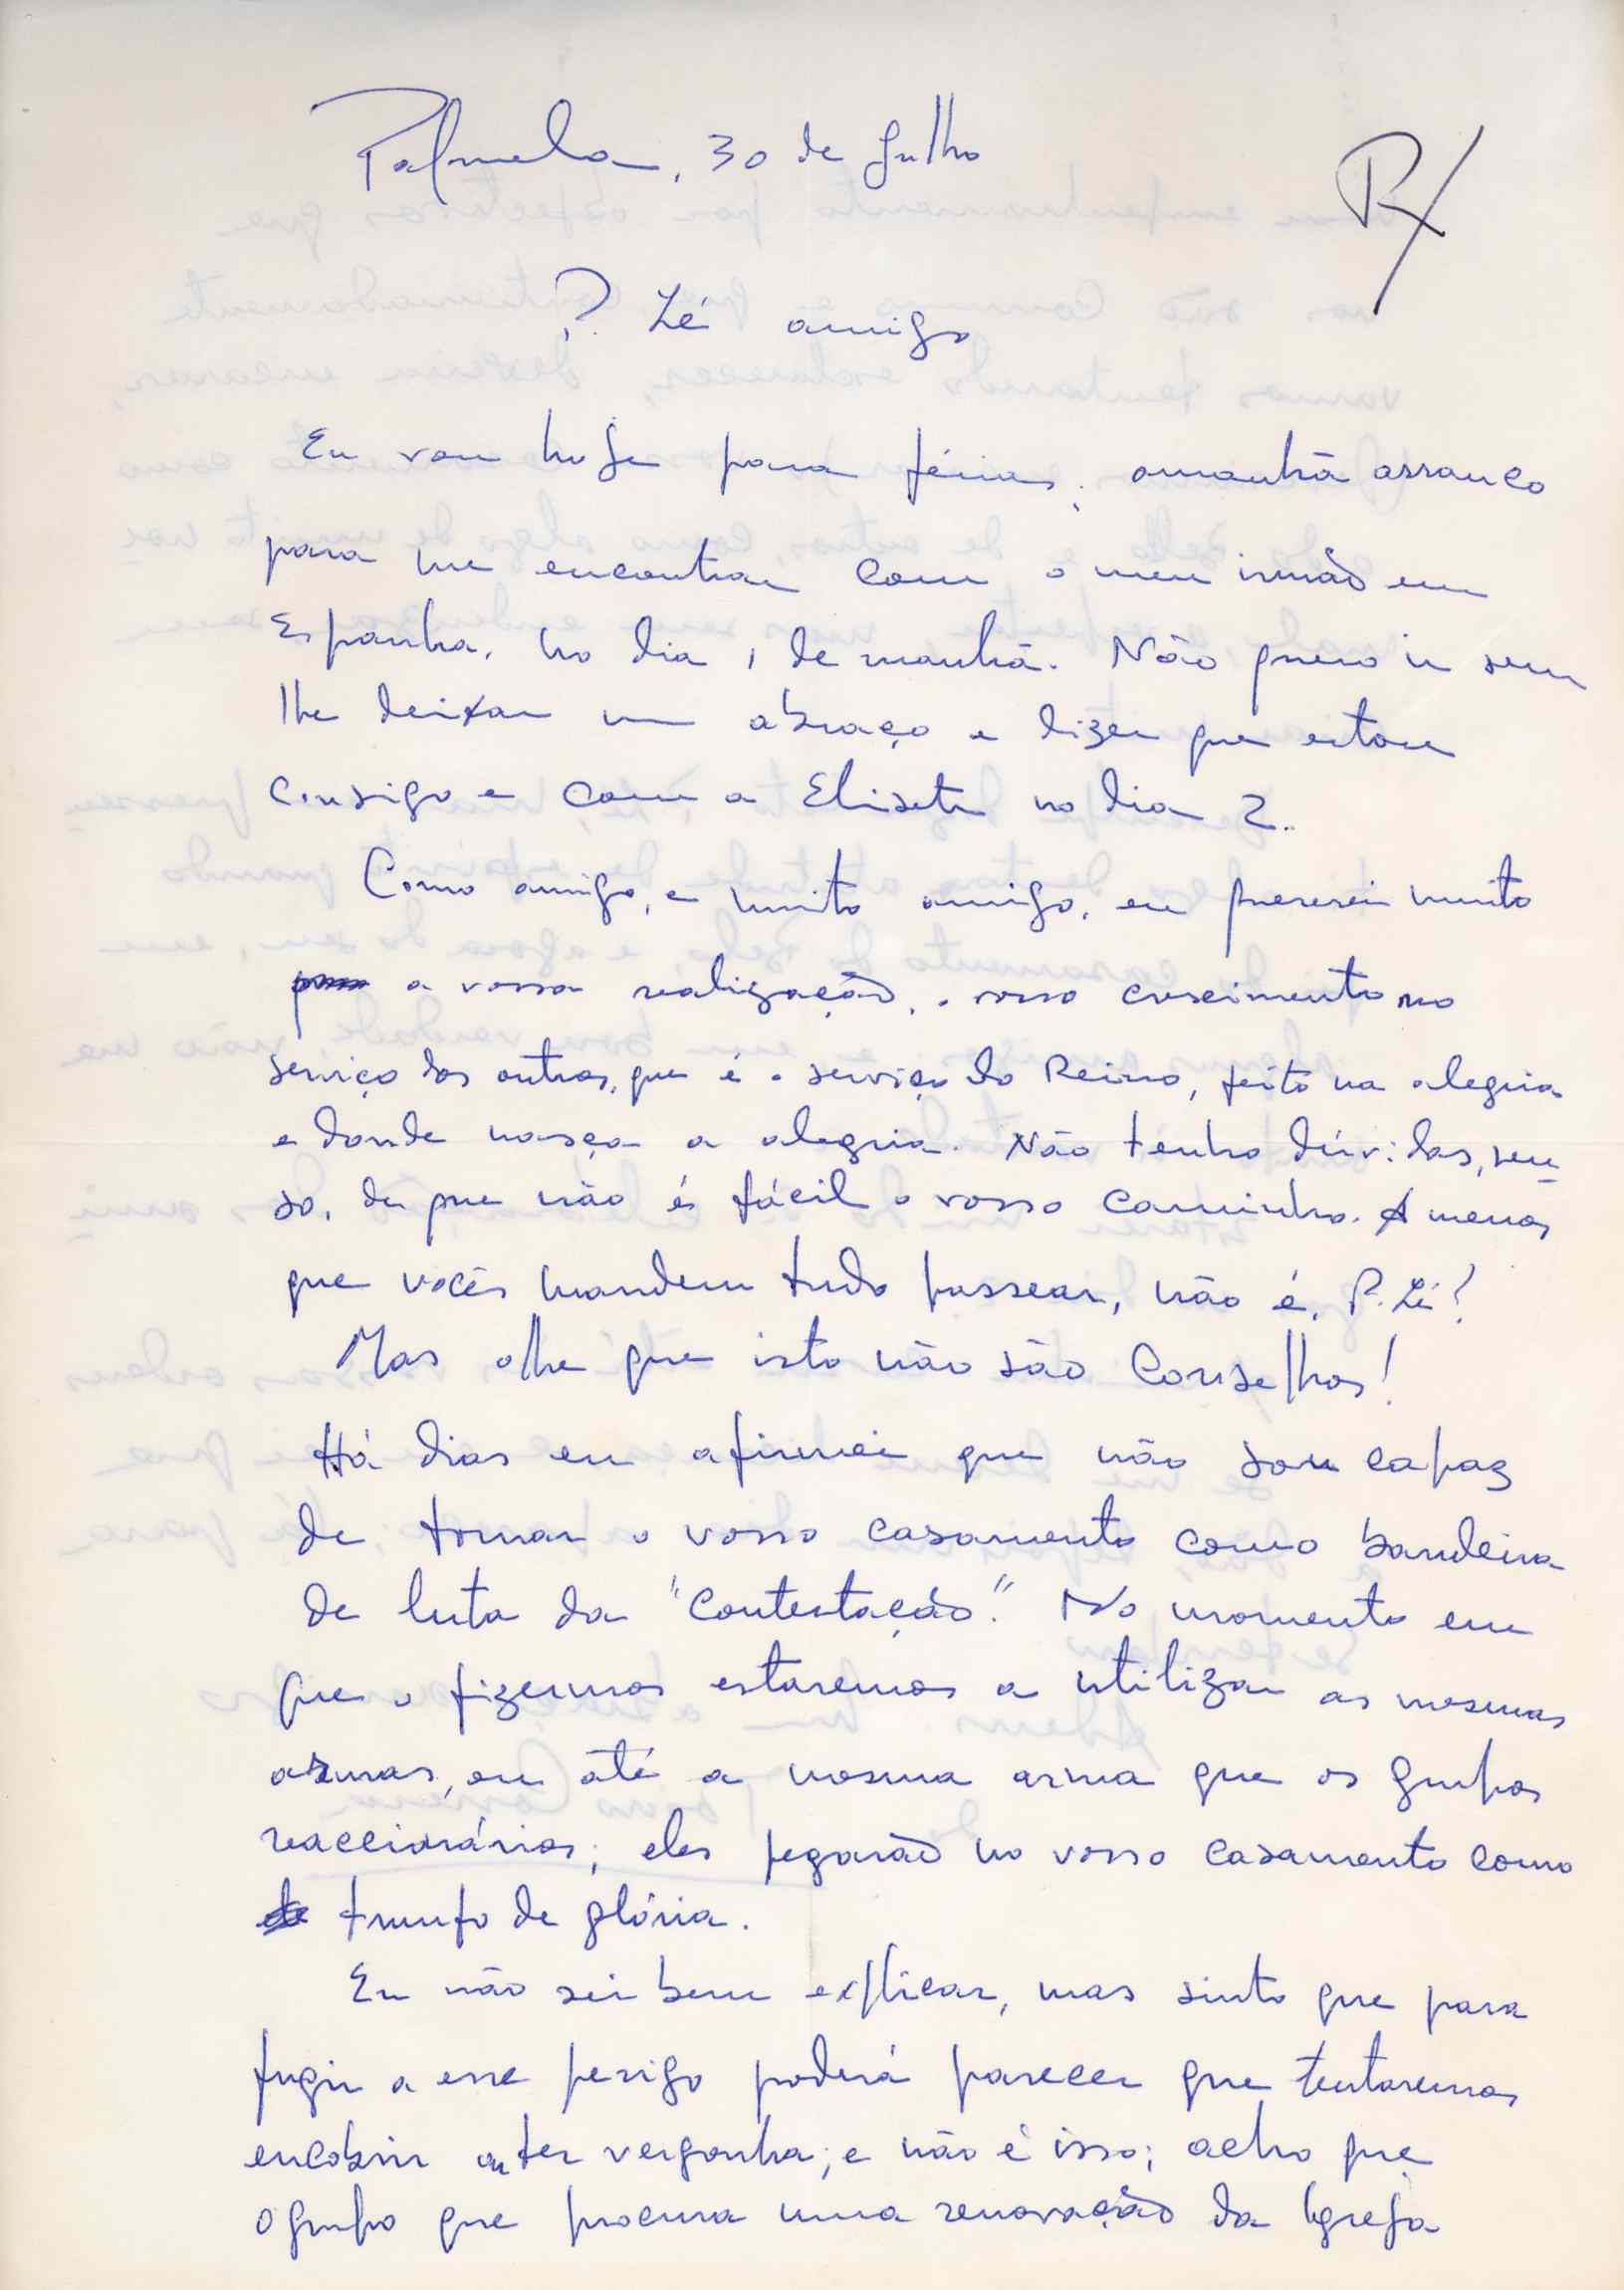 Palmela, 30 de Julho
R/
P. Zé amigo
Eu vou hoje para férias; amanhã arranco
para me encontrar com o meu irmão em
Espanha, no dia 1 de manhã. Não quero ir sem
lhe deixar um abraço e dizer que estou
consigo e com a Elisete no dia 2.
Como amigo, e muito amigo, eu quererei muito
a vossa realização, o vosso crescimento no
serviço dos outros, que é o serviço do Reino, feito na alegria
e donde nasça a alegria. Não tenho dúvidas, pen-
so, de que não é fácil o vosso caminho. A menos
que vocês mandem tudo passear, não é, P. Zé?
Mas olhe que isto não são conselhos!
Há dias eu afirmei que não sou capaz
de tomar o vosso casamento como bandeira
de luta da "contestação". No momento em
que o fizermos estaremos a utilizar as mesmas
armas, ou até a mesma arma que os grupos
reaccionários; eles pegarão no vosso casamento como
trunfo de glória.
Eu não sei bem explicar, mas sinto que para
fugir a esse perigo poderá parecer que tentaremos
encobrir ou ter vergonha; e não é isso; acho que
o grupo que procura uma renovação da Igreja